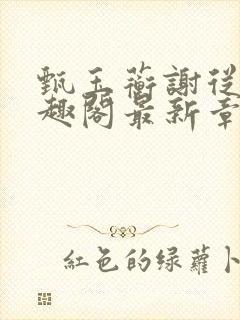 甄玉蘅謝從
趣閣最新章
紅色的綠蘿卜